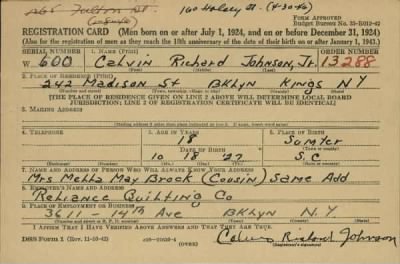 265 Fulton St. 160 Halsey St. (4-30-46)
FORM APPROVED
Budget Bureau No. 33-R012-42
REGISTRATION CARD (Men born on or after July 1, 1924, and on or before December 31, 1924)
(Also for the registration of men as they reach the 18th anniversary of the date of their birth on or after January 1, 1943.)
SERIAL NUMBER 1. NAME (Print) ORDER NUMBER
W 600 Calvin Richard Johnson, Jr. 13288
2. PLACE OF RESIDENCE (Print)
242 Madison St BKlyn Kings NY
[THE PLACE OF RESIDENCE GIVEN ON LINE 2 ABOVE WILL DETERMINE LOCAL BOARD
JURISDICTION; LINE 2 OF REGISTRATION CERTIFICATE WILL BE IDENTICAL]
3. MAILING ADDRESS
4. TELEPHONE 5. AGE IN YEARS 6. PLACE OF BIRTH
18 Sumter
DATE OF BIRTH
10 18 '27 S.C.
7. NAME AND ADDRESS OF PERSON WHO WILL ALWAYS KNOW YOUR ADDRESS
Mrs Melba May Brock (Cousin) Same Add
8. EMPLOYER'S NAME AND ADDRESS
Reliance Quilting Co
9. PLACE OF EMPLOYMENT OR BUSINESS
3611 - 14th Ave BKLYN N.Y.
I AFFIRM THAT I HAVE VERIFIED ABOVE ANSWERS AND THAT THEY ARE TRUE.
DSS Form 1 (Rev. 11-16-42) (OVER) Calvin Richard Johnson